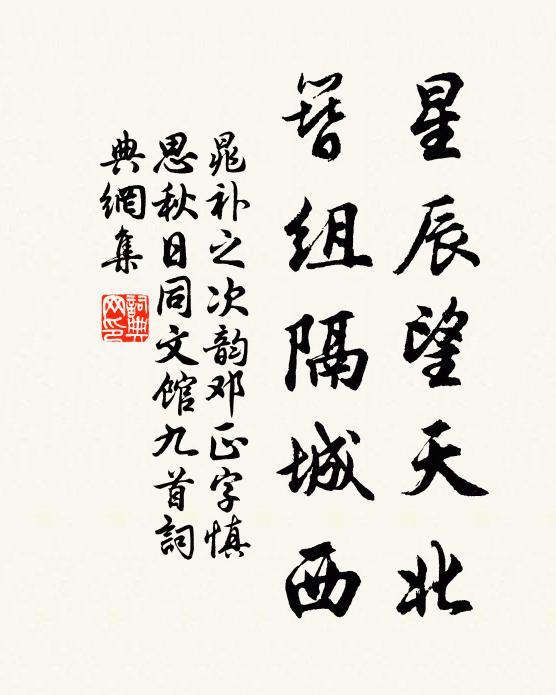 星辰望天北
簪组隔城西
晁补之次韵邓正字慎
思秋日同文馆九首詞
典網集
詞典
网印